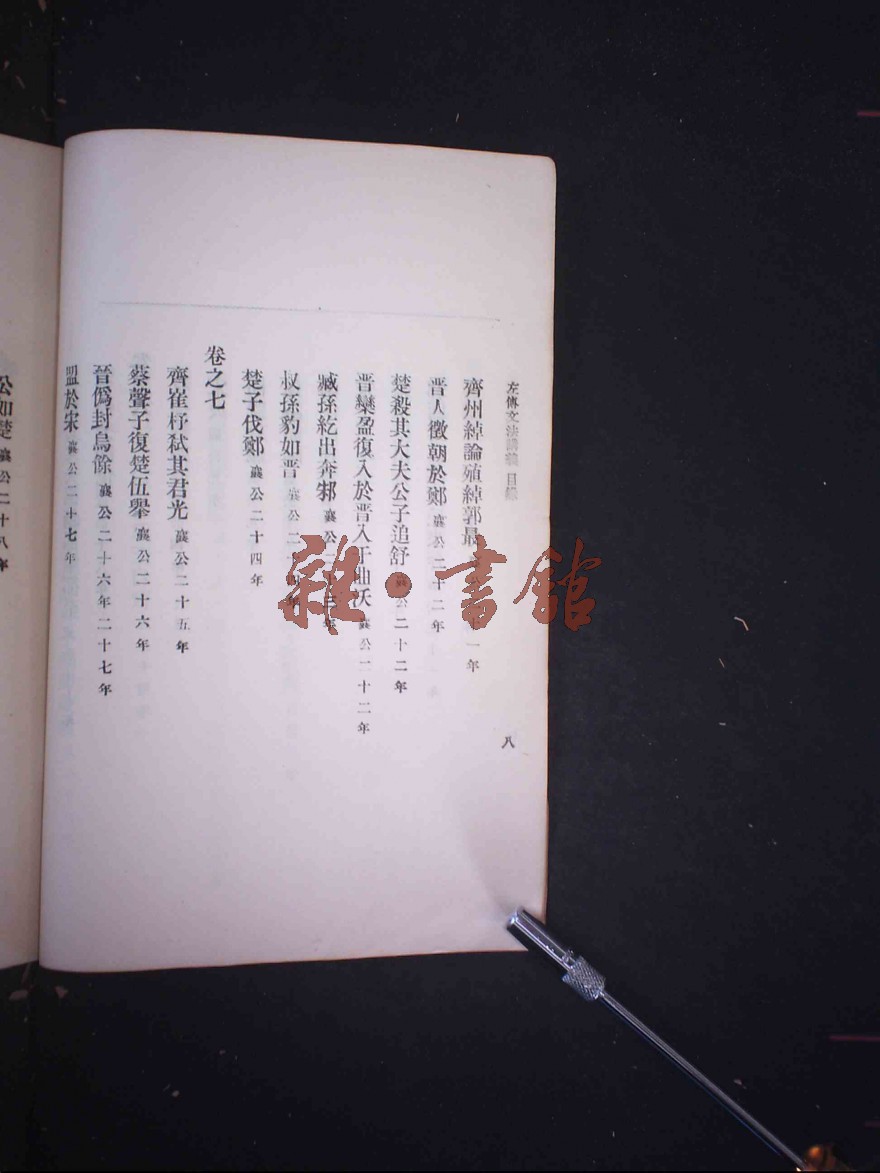 左傳文法講義 目錄
八
齊州綽論殖綽郭最 一年
晋人徵朝於鄭 襄公二十二年
楚殺其大夫公子追舒 襄公二十二年
晋欒盈復入於晋入于曲沃 襄公二十二年
臧孫紇出奔邾 襄公二十三年
叔孫豹如晋 襄公二十四年
楚子伐鄭 襄公二十四年
卷之七
齊崔杼弑其君光 襄公二十五年
蔡聲子復楚伍舉 襄公二十六年
晉僞封烏餘 襄公二十六年二十七年
盟於宋 襄公二十七年
公如楚 襄公二十八年
雜·書館